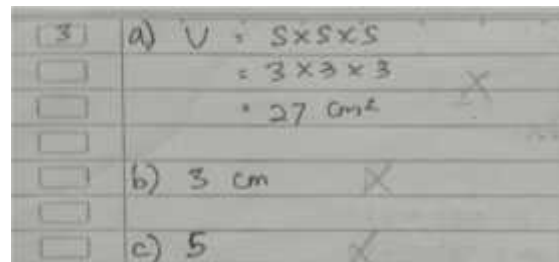 3 a) V = S×S×S
= 3 × 3 × 3
= 27 cm²
b) 3 cm
c) 5